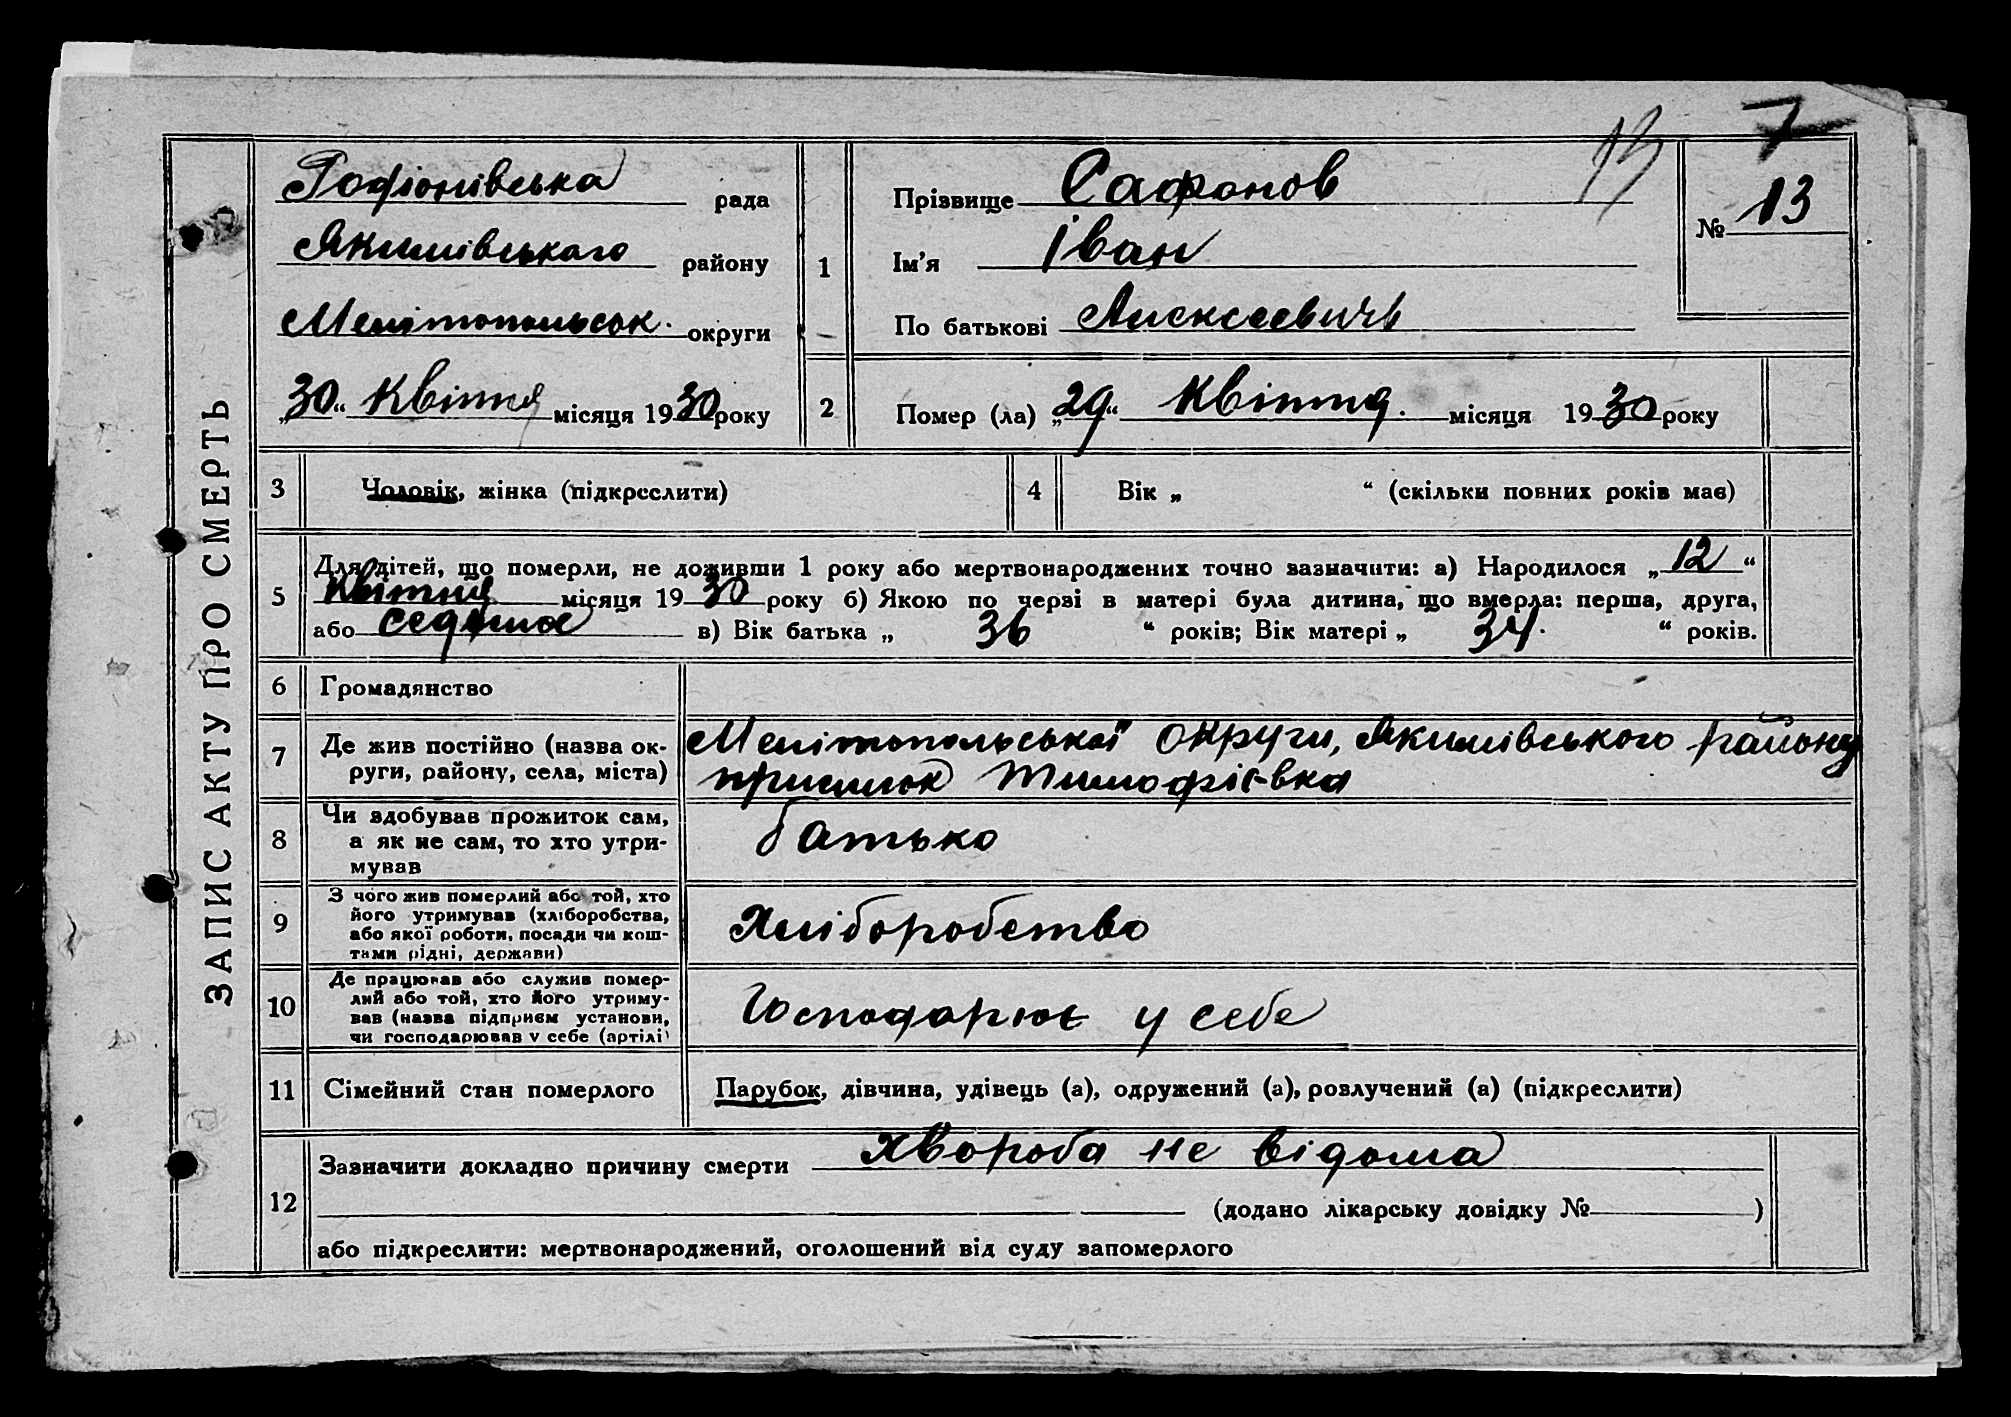 ЗАПИС АКТУ ПРО СМЕРТЬ
13 7
Родіонівська рада
Якимівського району
Мелітопольськ. округи
„30“ Квітня місяця 1930 року
1
Прізвище Сафонов
Ім’я Іван
По батькові Алексеевичь
№ 13
2
Помер (ла) „29“ Квітня. місяця 1930 року
3 Чоловік, жінка (підкреслити)
4 Вік „ “ (скільки повних років має)
5 Для дітей, що померли, не доживши 1 року або мертвонароджених точно зазначити: а) Народилося „12“
Квітня місяця 1930 року б) Якою по черзі в матері була дитина, що вмерла: перша, друга,
або седьмая в) Вік батька „ 36 “ років; Вік матері „ 34. “ років.
6 Громадянство
7 Де жив постійно (назва ок-
руги, району, села, міста)
Мелітопольської округи, Якимівського району
присілок Тимофіївка
8 Чи здобував прожиток сам,
а як не сам, то хто утри-
мував
батько
9 З чого жив померлий або той, хто
його утримував (хліборобства,
або якої роботи, посади чи кош-
тами рідні, держави)
Хліборобство
10 Де працював або служив помер-
лий або той, хто його утриму-
вав (назва підприєм установи,
чи господарював у себе (артілі)
Господарює у себе
11 Сімейний стан померлого Парубок, дівчина, удівець (а), одружений (а), розлучений (а) (підкреслити)
12 Зазначити докладно причину смерти Хвороба не відома
(додано лікарську довідку № )
або підкреслити: мертвонароджений, оголошений від суду запомерлого